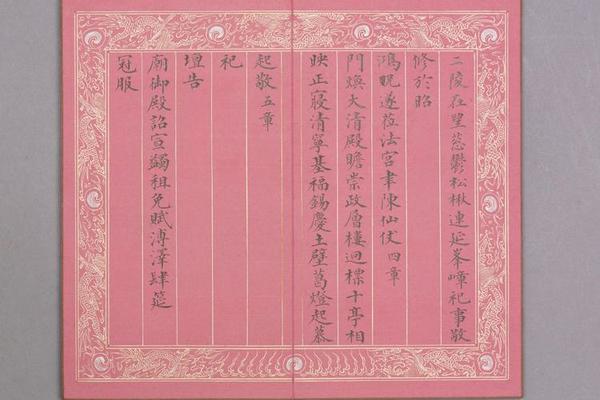 二陵在望蔥鬱松楸連延峯嶂祀事敬
修於昭
鴻貺遂莅法宮聿陳仙仗四章
門煥大清殿瞻崇政層樓迥標十亭相
映正寢清寧基福錫慶土壁葛燈起慕
起敬五章
祀
壇告
廟御殿詔宣蠲租免賦溥澤肆筵
冠服